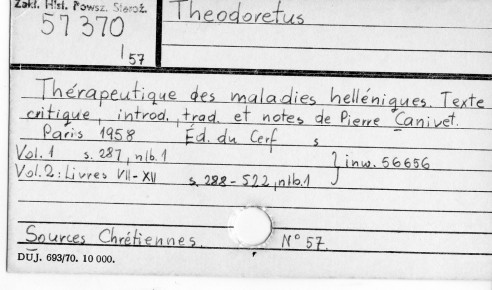 Zakł. Hist. Powsz. Staroż.
Theodoretus
57 370
1 57
Thérapeutique des maladies helléniques. Texte
critique, introd., trad. et notes de Pierre Canivet.
Paris 1958 Éd. du Cerf s
Vol. 1 s. 287, nlb. 1 } inw. 56656
Vol. 2: Livres VII-XII s. 288-522, nlb. 1
Sources Chrétiennes. N° 57.
DUJ. 693/70. 10 000.